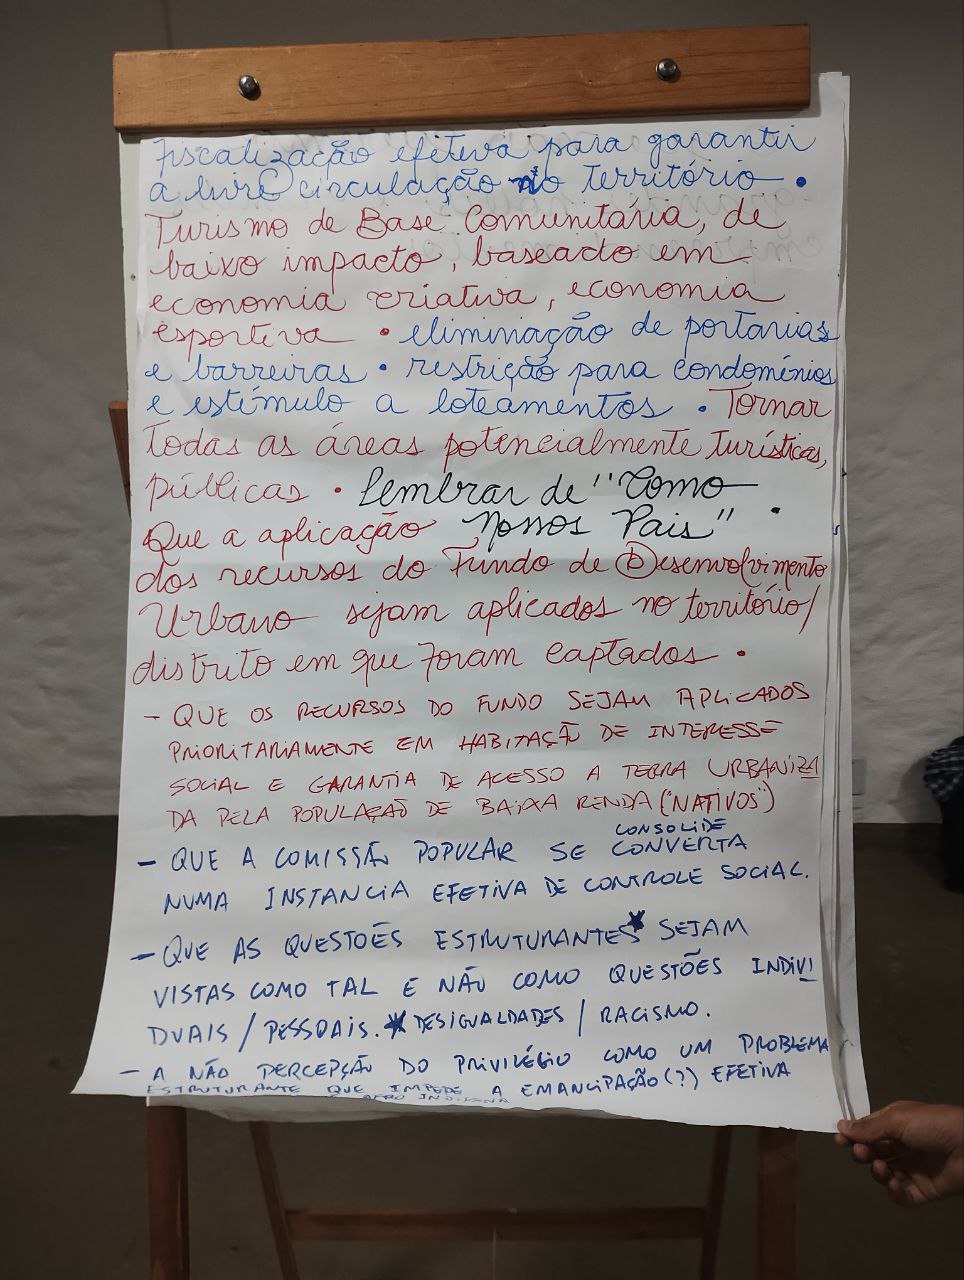 Fiscalização efetiva para garantir
a livre circulação no território •
Turismo de Base Comunitária, de
baixo impacto, baseado em
economia criativa, economia
esportiva • eliminação de portarias
e barreiras • restrição para condomínios
e estímulo a loteamentos • Tornar
todas as áreas potencialmente turísticas,
públicas • Lembrar de "Como
Nossos Pais" •
Que a aplicação
dos recursos do Fundo de Desenvolvimento
Urbano sejam aplicados no território/
distrito em que foram captados •
- QUE OS RECURSOS DO FUNDO SEJAM APLICADOS
PRIORITARIAMENTE EM HABITAÇÃO DE INTERESSE
SOCIAL E GARANTIA DE ACESSO A TERRA URBANIZA
DA PELA POPULAÇÃO DE BAIXA RENDA ("NATIVOS")
CONSOLIDE
- QUE A COMISSÃO POPULAR SE CONVERTA
NUMA INSTANCIA EFETIVA DE CONTROLE SOCIAL.
- QUE AS QUESTÕES ESTRUTURANTES* SEJAM
VISTAS COMO TAL E NÃO COMO QUESTÕES INDIVI
DUAIS / PESSOAIS. * DESIGUALDADES / RACISMO.
- A NÃO PERCEPÇÃO DO PRIVILÉGIO COMO UM PROBLEMA
ESTRUTURANTE QUE IMPEDE A EMANCIPAÇÃO (?) EFETIVA
AFRO INDIGENA